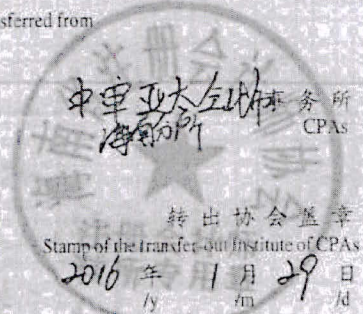 sferred from
中审亚太会计师事务所
海南分所
CPAs
转出协会盖章
Stamp of the transfer-out Institute of CPAs
2016 年 1 月 29 日
/y /m /d